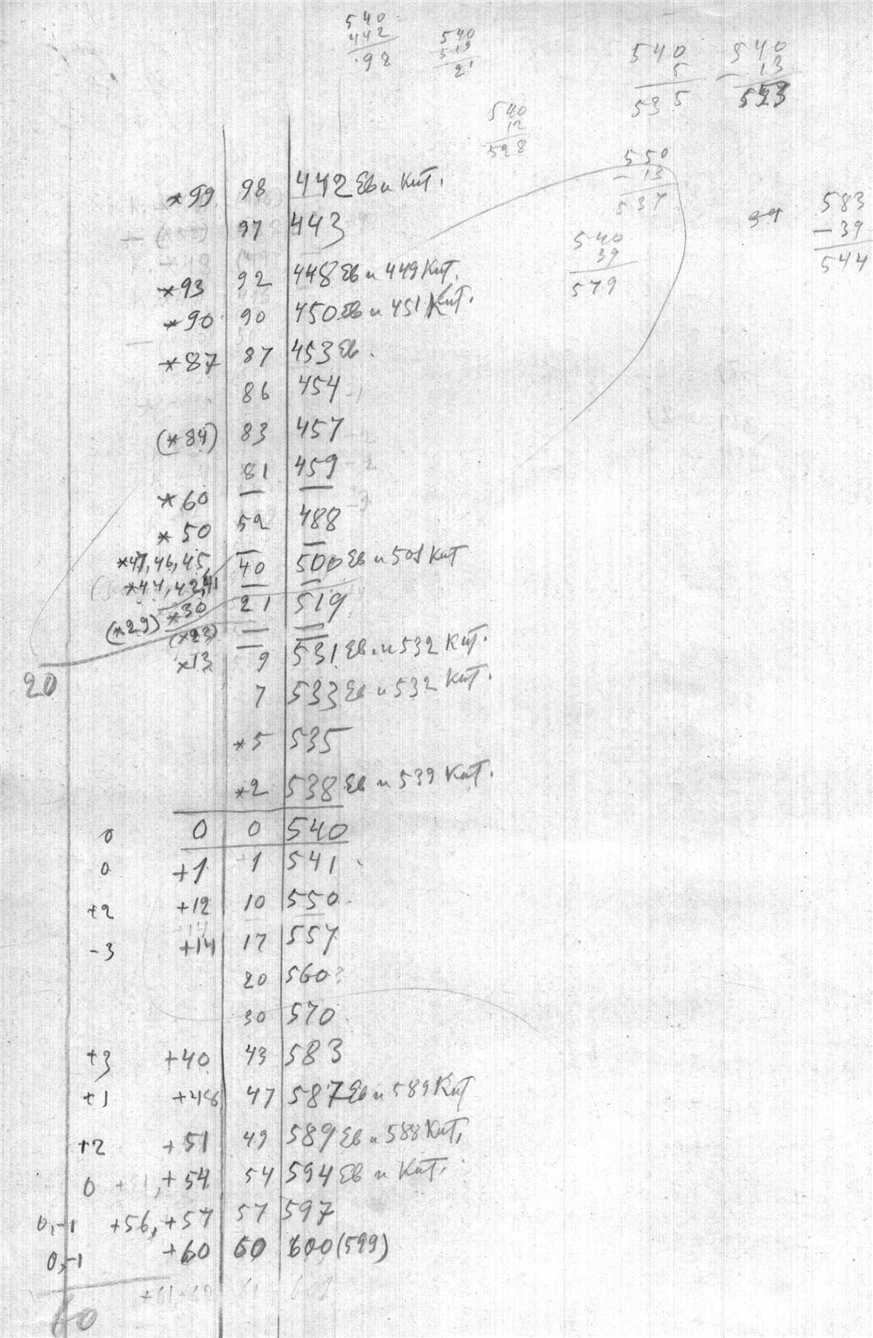 540
442
98
540
519
21
540
5
535
540
- 13
523
540
12
528
550
- 13
537
540
39
579
583
- 39
544
*99 98 442 Ев и Кит.
97 443
*93 92 448 Ев и 449 Кит.
*90 90 450 Ев и 451 Кит.
*87 87 453 Ев.
86 454
(*84) 83 457
81 459
*60 — —
*50 52 488
*47, 46, 45, — —
40 500 Ев и 501 Кит
*44, 42, 41 — —
(*29) *30 21 519
(*22) — —
*13 9 531 Ев. и 532 Кит.
20
7 533 Ев и 532 Кит.
*5 535
*2 538 Ев и 539 Кит.
0 0 0 540
0 +1 1 541
+2 +12 10 550
-3 +14 17 557
20 560?
30 570
+3 +40 43 583
+1 +48 47 587 Ев и 589 Кит
+2 +51 49 589 Ев и 588 Кит,
0 +51, +54 54 594 Ев и Кит.
0, -1 +56, +57 57 597
0, -1 +60 60 600 (599)
60